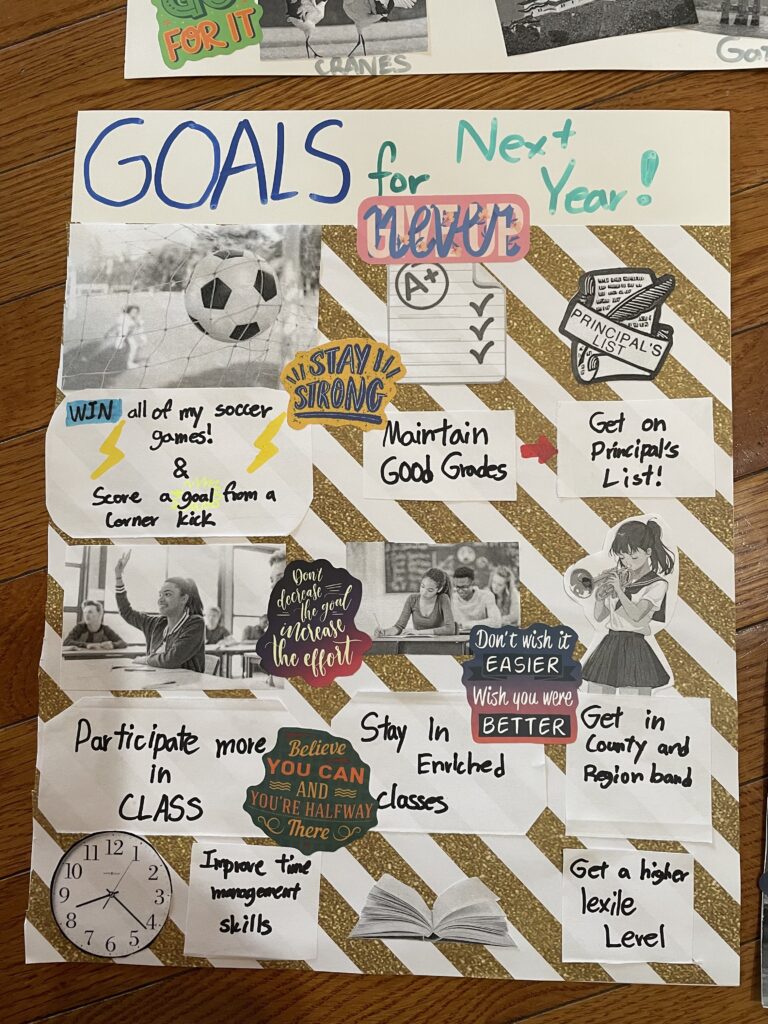 GO
FOR IT
CRANES
Gar
GOALS for Next
Year!
never
GIVE UP
A+
PRINCIPAL'S
LIST
STAY
STRONG
WIN all of my soccer
games!
&
Score a goal from a
Corner kick
Maintain
Good Grades
Get on
Principal's
List!
Don't
decrease
the goal
increase
the effort
Don't wish it
EASIER
Wish you were
BETTER
Participate more
in
CLASS
Believe
YOU CAN
AND
YOU'RE HALFWAY
There
Stay In
Enriched
classes
Get in
County and
Region band
11 12 1
10 2
9 3
8 4
7 6 5
Improve time
management
skills
Get a higher
lexile
Level